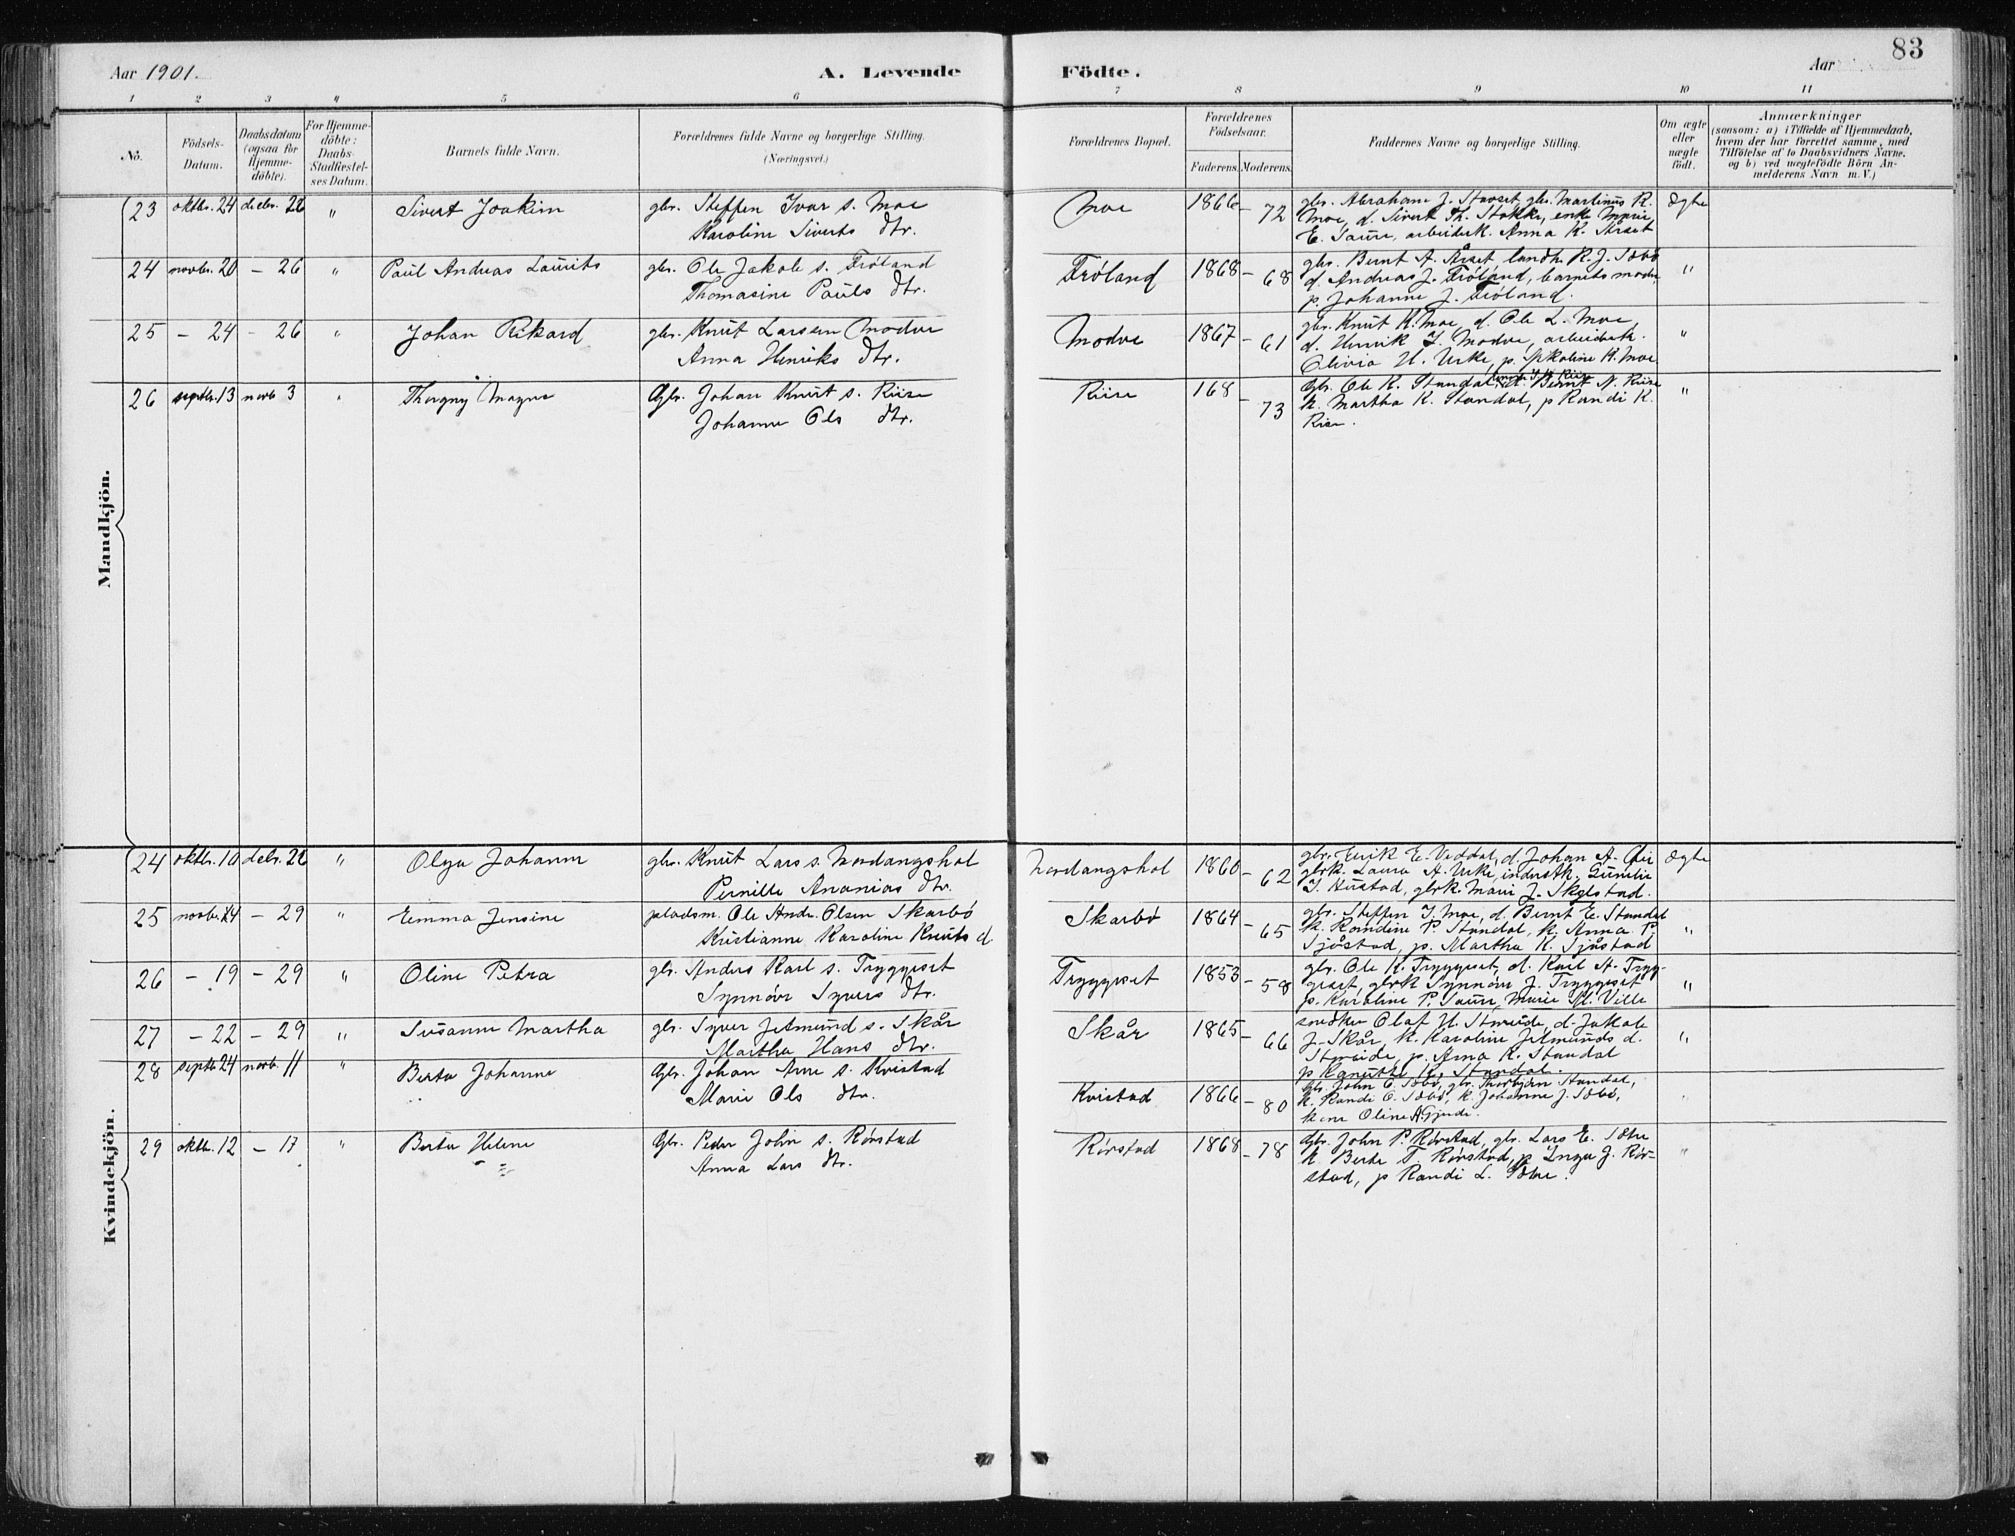 83
Aar 1901.
A. Levende
Födte.
Aar
1 2 3 4 5 6 7 8 9 10 11
No.
Födsels-Datum.
Daabsdatum (ogsaa for Hjemme-döbte).
For Hjemme-döbte: Daabs-Stadfæstel-ses Datum.
Barnets fulde Navn.
Forældrenes fulde Navne og borgerlige Stilling.
(Næringsvei.)
Forældrenes Bopæl.
Forældrenes Födselsaar.
Faderens. Moderens.
Faddernes Navne og borgerlige Stilling.
Om ægte eller uægte födt.
Anmærkninger
(saasom: a) i Tilfælde af Hjemmedaab,
hvem der har forrettet samme, med
Tilföielse af to Daabsvidners Navne,
og b) ved uægtefödte Börn An-
melderens Navn m. V.)
Mandkjön.
23 oktbr. 24 decbr. 26 " Sivert Joakim gbr. Steffen Ivar s. Moe Moe 1866 - 72 gbr. Abraham J. Stavset, gbr. Martinus K. Ægte
Karoline Siverts dtr. Moe, d. Sivert Th. Stokke, enke Marie
E. Saure, arbeidsk. Anna K. Årset
24 novbr. 20 - 26 " Paul Andreas Laurits gbr. Ole Jakob s. Fröland Fröland 1868 - 68 gbr. Bernt A. Årset landh. K. J. Sæbö "
Thomasine Pauls dtr. d. Andreas J. Fröland, barnets moder,
p. Johanne J. Fröland.
25 - 24 - 26 " Johan Rikard gbr. Knut Larsen Modve Modve 1867 - 61 gbr. Knut K. Moe, d. Ole L. Moe, "
Anna Henriks dtr. d. Henrik I. Modve, arbeidsk.
Olivia H. Urke, p. K. Moe
26 septbr. 13 novb 3 " Thorgny Magne Gbr. Johan Knut s. Riise Riise 168 - 73 Gbr. Ole K. Standal, Bernt N. Riise "
Johanne Ols dtr. k. Martha K. Standal, p Randi K.
Riise.
Kvindekjön.
24 oktbr. 10 decbr. 26 " Olga Johanne gbr. Knut Lars s. Nordangshol Nordangshol 1860 - 62 gbr. Erik E. Veddal, d. Johan A. Ægte
Pernille Ananias dtr. gbrk. Laura A. Urke, industk. Gurine
I. Kustad, gbrk. Marie J. Skylstad.
25 novbr. 24 - 29 " Emma Jensine pladsm. Ole Andr. Olsen Skarbö Skarbö 1864 - 65 gbr. Steffen I. Moe, d. Bernt E. Standal "
Kristianne Karoline Knuts d. k. Romdine P. Standal, k. Anna P.
Sjåstad, p. Martha K. Sjåstad
26 - 19 - 29 " Oline Petra gbr. Anders Karl s. Tryggeset Tryggeset 1853 - 58 gbr. Ole K. Tryggeset, d. Karl A. Tryg-
Synnöve Syvers dtr. geset, gbrk Synnöve J. Tryggeset "
p. Karoline P. Saure, Marie M. Ville
27 - 22 - 29 " Susanne Martha gbr. Syver Jetmund s. Skår Skår 1865 - 66 snedker Olaf H. Steneide, d. Jakob "
Martha Hans dtr. J. Skår, k. Karoline Jetmunds d.
Steneide, p. Anna K. Standal
p K. Standal.
28 septb 24 novb. 11 " Berta Johanne Gbr. Johan Arne s. Kvistad Kvistad 1866 - 80 Gbr. John O. Sæbö, gbr. Thorbjörn Standal, "
Marie Ols dtr. k. Randi O. Sæbö, k. Johanne J. Sæbö,
Oline A. Gjerde.
29 oktbr. 12 - 17 " Berta Helene Gbr. Peder John s. Rörstad Rörstad 1868 - 78 Gbr. John P. Rörstad, gbr. Lars E. Sætre "
Anna Lars dtr. k Berte T. Rörstad, p Inga J. Rör-
stad, p Randi L. Sætre.